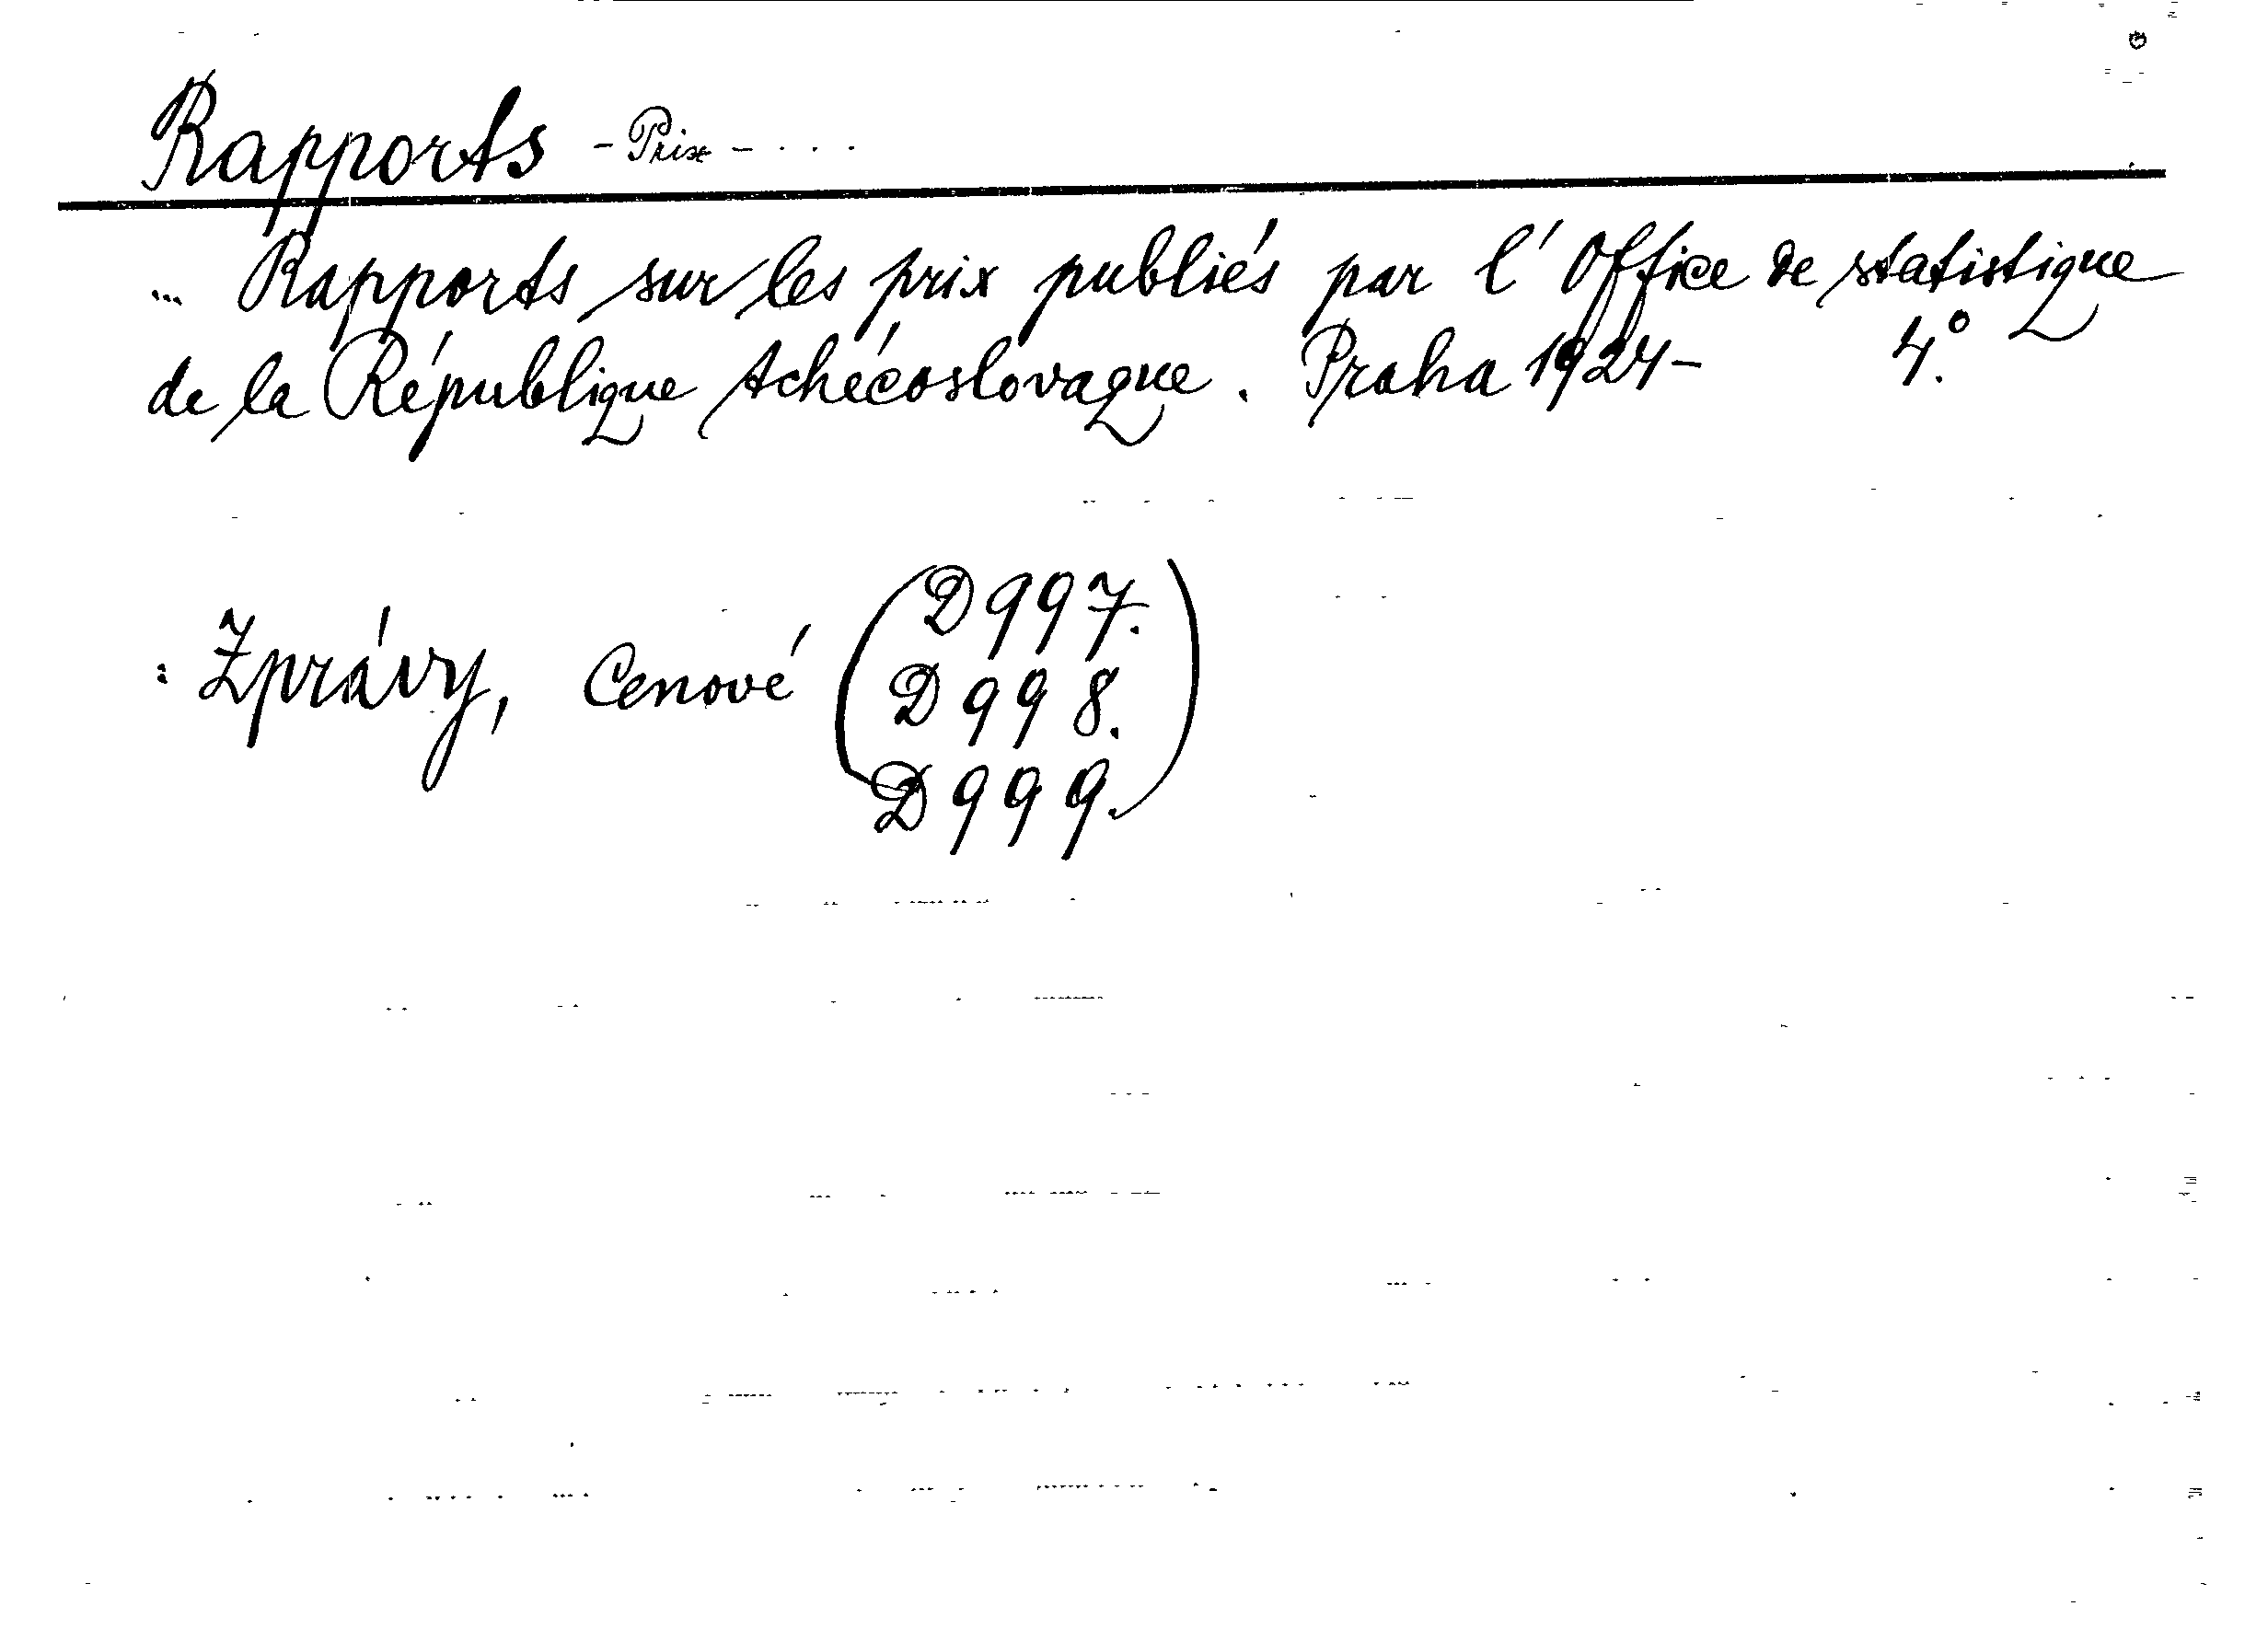 Rapports - Prix - . . .
... Rapports sur les prix publiés par l' Office de statistique
de la République tchécoslovaque. Praha 1924- 4°.
: Zprávy, Cenové
(D 997.
D 998.
D 999.)